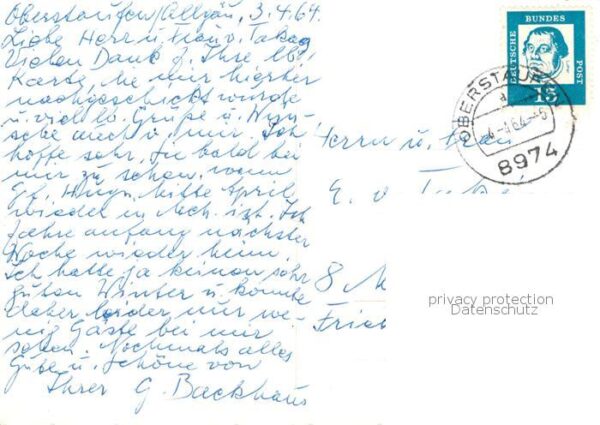 Oberstaufen/Allgäu, 3.4.64.
Liebe Herr u. Frau v.
Vielen Dank f. Ihre lb.
Karte, die mir hierher
nachgeschickt wurde
u. viele lb. Grüße u. Wün-
sche auch v. mir. Ich
hoffe sehr, Sie bald bei
mir zu sehen, wenn
Gf. Hugn. Mitte April
wieder in Mch. ist. Ich
fahre anfang nächster
Woche wieder heim.
Ich hatte ja keinen sehr
guten Winter u. konnte
daher leider nur we-
nig Gäste bei mir
sehen. Nochmals alles
Gute u. Schöne von
Ihrer G. Backhaus
DEUTSCHE BUNDES POST
15
OBERSTAUFEN
8974
Herrn u. Frau
E. v.
8 M
Fried
privacy protection
Datenschutz